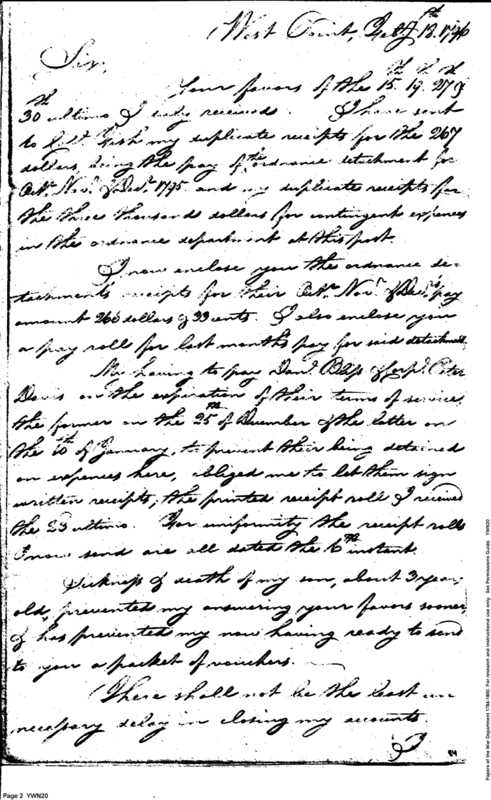 West Point, Feby 13th. 1796
Sir,
Your favors of the 15th. 19th. 27th &
30th ultimo I duly received. I have sent
to Col. Fish my duplicate receipts for the 267
dollars, being the pay of the ordnance detachment for
Octr. Novr. & Decr. 1795 and my duplicate receipts for
the three thousand dollars for contingent expences
in the ordnance department at this post.
I now enclose you the ordnance de-
tachment's receipts for their Octr. Novr. & Decr's pay
amount 266 dollars & 99 cents. I also enclose you
a pay roll for last months pay for said detachment.
My having to pay Danl. Bliss & Corpl. Peter
Davis on the expiration of their terms of service,
the former on the 25th of December & the latter on
the 10th of January, to prevent their being detained
on expences here, obliged me to let them sign
written receipts; the printed receipt rolls I received
the 23 ultimo. For uniformity the receipt rolls
I now send are all dated the 6th instant.
Sickness & death of my son, about 3 years
old, prevented my answering your favors sooner,
& has prevented my now having ready to send
to you a packet of vouchers.
There shall not be the least un-
necessary delay in closing my accounts.
84
Page 2 YWN20
Papers of the War Department 1784-1800. For research and instructional use only. See Permissions Guide. YWN20